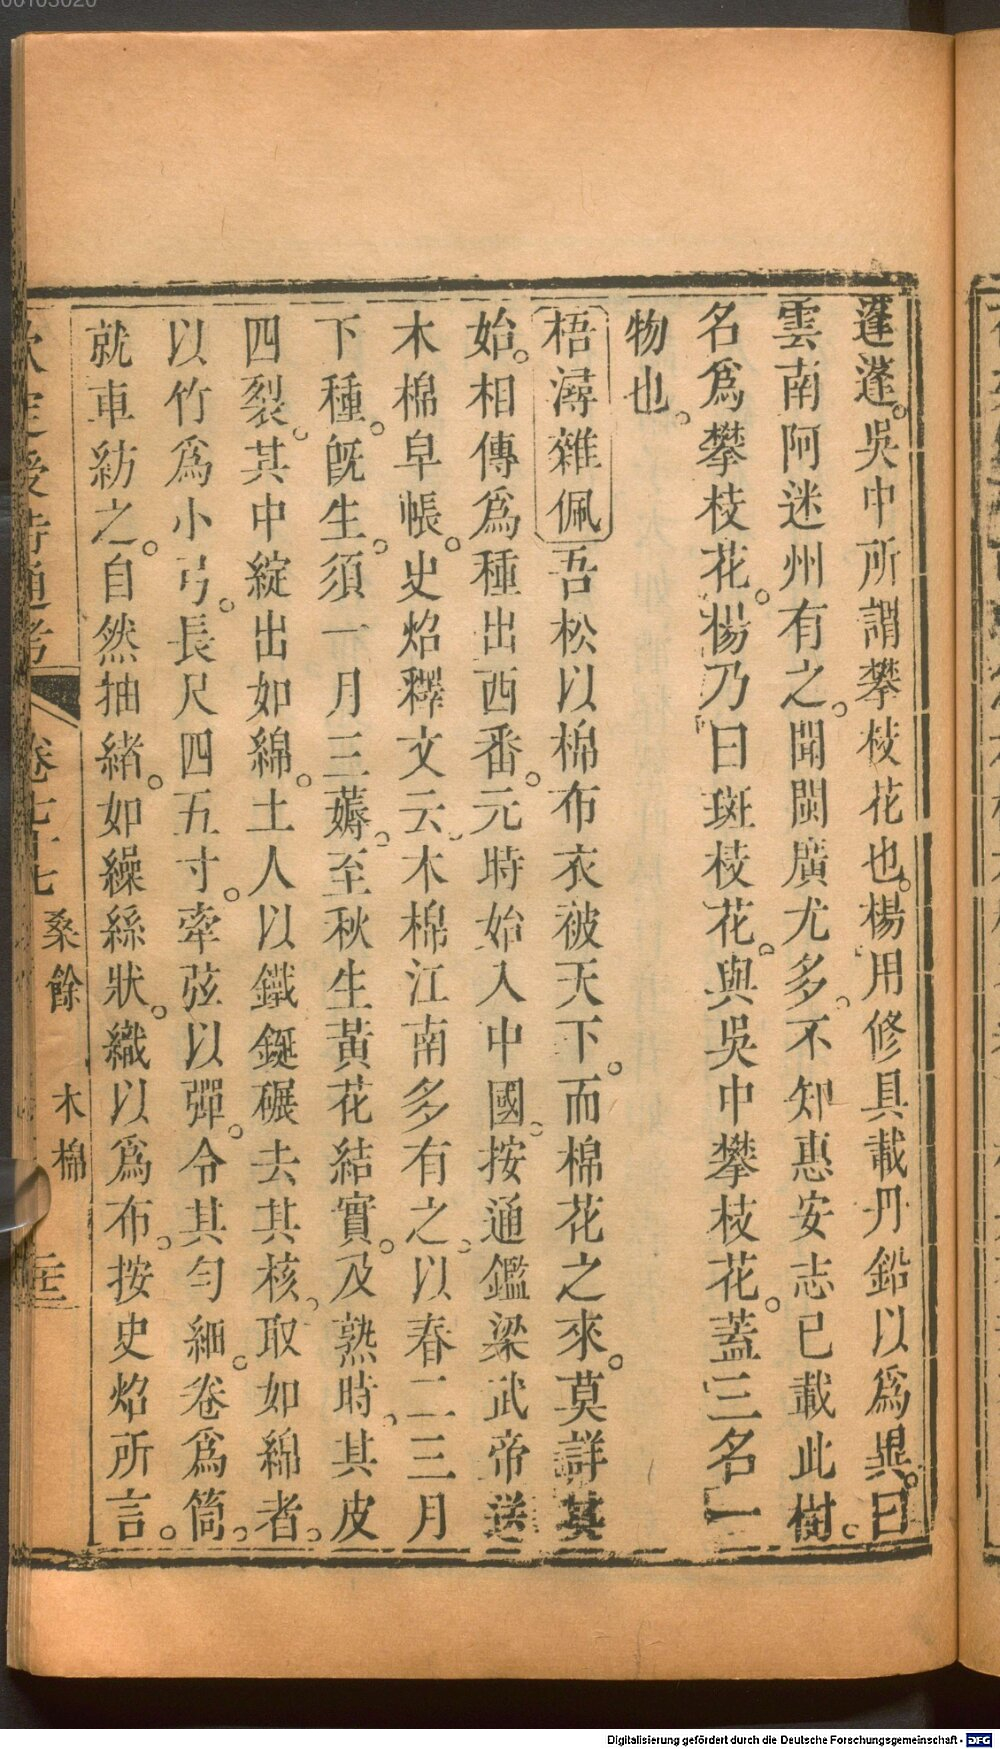 蓬蓬。吳中所謂攀枝花也。楊用修具載丹鉛以爲異。曰
雲南阿迷州有之。聞閩廣尤多。不知惠安志已載此樹。
名爲攀枝花。楊乃曰斑枝花。與吳中攀枝花。蓋三名一
物也。
梧潯雜佩 吾松以棉布衣被天下。而棉花之來。莫詳其
始。相傳爲種出西番。元時始入中國。按通鑑梁武帝送
木棉皁帳。史炤釋文云。木棉江南多有之。以春二三月
下種。旣生。須一月三薅。至秋生黃花結實。及熟時。其皮
四裂。其中綻出如綿。土人以鐵鋌碾去其核。取如綿者。
以竹爲小弓。長尺四五寸。牽弦以彈。令其勻細。卷爲筒。
就車紡之。自然抽緒。如繰絲狀。織以爲布。按史炤所言。
欽定授時通考 卷七十七 桑餘 木棉 二十三
00103020
Digitalisierung gefördert durch die Deutsche Forschungsgemeinschaft - DFG